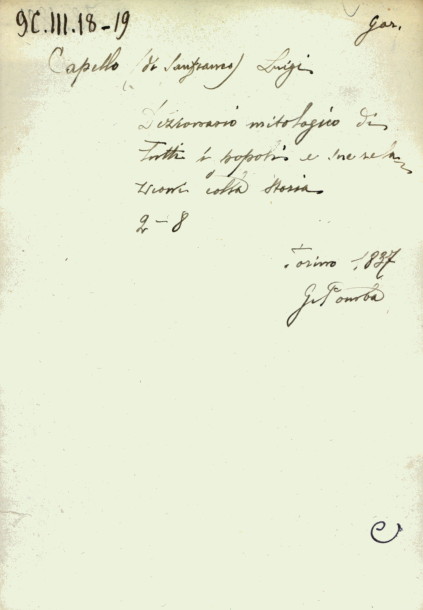 9C.III.18-19
Gar.
Capello (di Sanfranco) Luigi
Dizionario mitologico di
tutti i popoli e in rela-
zione colla storia
2-8
Torino 1837
G. Pomba
C